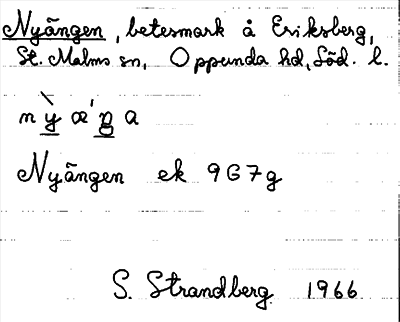 Nyängen, betesmark å Eriksberg,
St. Malms sn, Oppunda hd, Söd. l.
nỳæ´ŋa
Nyängen ek 9G7g
S. Strandberg 1966